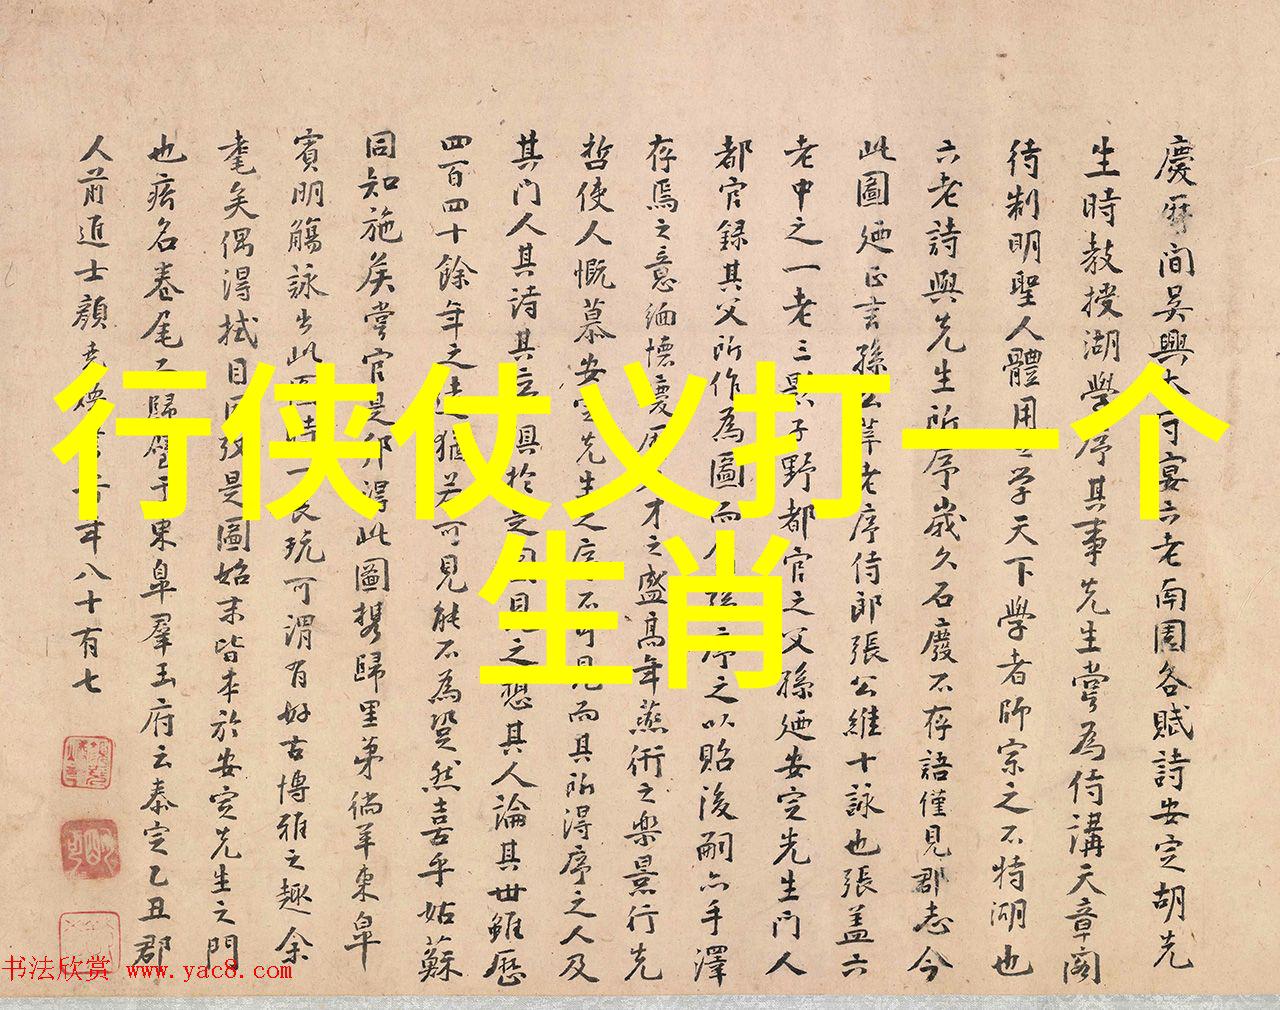 慶曆間吳興太守宴六老南園各賦詩安定胡先
生時教授湖學序其事先生嘗為侍講天章閣
待制明聖人體用之學天下學者師宗之不特湖也
六老詩與先生所序歲久石廢不存語僅見郡志今
此圖廼正言孫公莘老序侍郎張公維十詠也張蓋六
老中之一老三影子野都官之父孫廼安定先生門人
都官錄其父所作為圖而人孫序之以貽後嗣亦手澤
存焉之意緬懷慶曆人才之盛高年燕衎之樂景行先
哲使人慨慕安定先生之序不可見而其所得序之人及
其門人其詩其立具於之目見之想其人論其世雖歷
四百四十餘年之遠猶若可見能不為興然喜乎姑蘇
同知施矦嘗官是邦得此圖携歸里第徜羊東皐
賓明觴詠出此圖時一展玩可謂有好古博雅之趣余
耄矣偶得拭目因攷是圖始末皆本於安定先生之門
也痞名卷尾乙歸璧于東皐羣玉府云泰定乙丑郡
人前進士顏堯煥書于年八十有七
行侠仗义打一个
生肖
书法欣赏 www.yac8.com